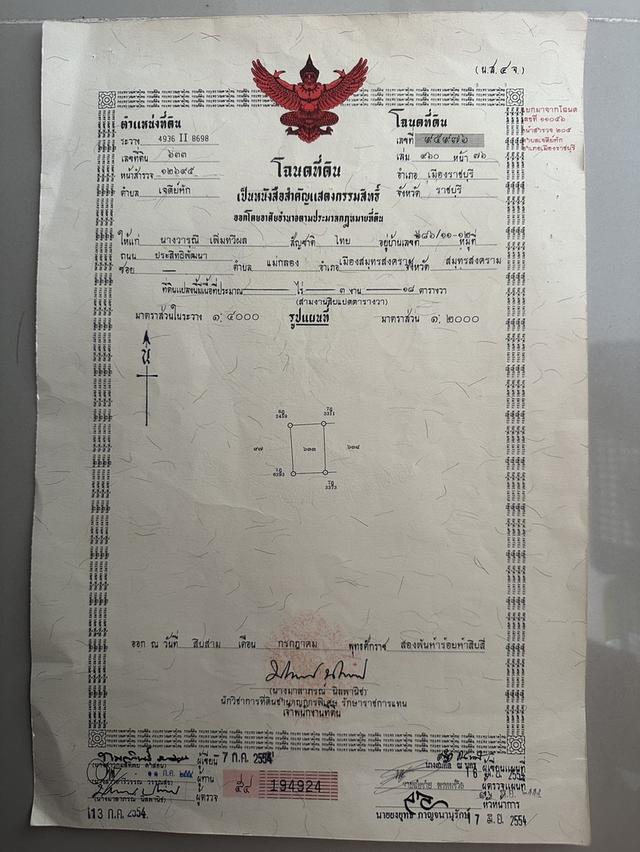 (น.ส.๔ จ.)
ตำแหน่งที่ดิน
ระวาง 4936 II 8698
เลขที่ดิน ๖๓๓
หน้าสำรวจ ๑๒๖๙๕
ตำบล เจดีย์หัก
โฉนดที่ดิน
เลขที่ ๙๕๙๗๖
เล่ม ๙๖๐ หน้า ๗๖
อำเภอ เมืองราชบุรี
จังหวัด ราชบุรี
แยกมาจากโฉนด
เลขที่ ๑๑๐๕๖
หน้าสำรวจ ๒๐๕
ตำบลเจดีย์หัก
อำเภอเมืองราชบุรี
โฉนดที่ดิน
เป็นหนังสือสำคัญแสดงกรรมสิทธิ์
ออกโดยอาศัยอำนาจตามประมวลกฎหมายที่ดิน
ให้แก่ นางวารุณี เพิ่มทวีผล สัญชาติ ไทย อยู่บ้านเลขที่ ๒๘๖/๑๑-๑๒ หมู่ที่
ถนน ประสิทธิ์พัฒนา
ซอย — ตำบล แม่กลอง อำเภอ เมืองสมุทรสงคราม จังหวัด สมุทรสงคราม
ที่ดินแปลงนี้มีเนื้อที่ประมาณ — ไร่ ๓ งาน ๑๘ ตารางวา
(สามงานสิบแปดตารางวา)
มาตราส่วนในระวาง ๑: ๔๐๐๐ รูปแผนที่ มาตราส่วน ๑: ๒๐๐๐
น
๙๗ ๖๓๓ ๖๓๔
ออก ณ วันที่ สิบสาม เดือน กรกฎาคม พุทธศักราช สองพันห้าร้อยห้าสิบสี่
(นางมาลาภรณ์ นิลพานิช)
นักวิชาการที่ดินชำนาญการพิเศษ รักษาราชการแทน
เจ้าพนักงานที่ดิน
ผู้เขียน 7 ก.ค. 2554
ผู้ทาน
ผู้ตรวจ
(นางมาลาภรณ์ นิลพานิช)
13 ก.ค. 2554
194924
ผู้เขียนแผนที่
ผู้ตรวจแผนที่
หัวหน้าการ
นายยงยุทธ กาญจนานุรักษ์ 7 มิ.ย. 2554